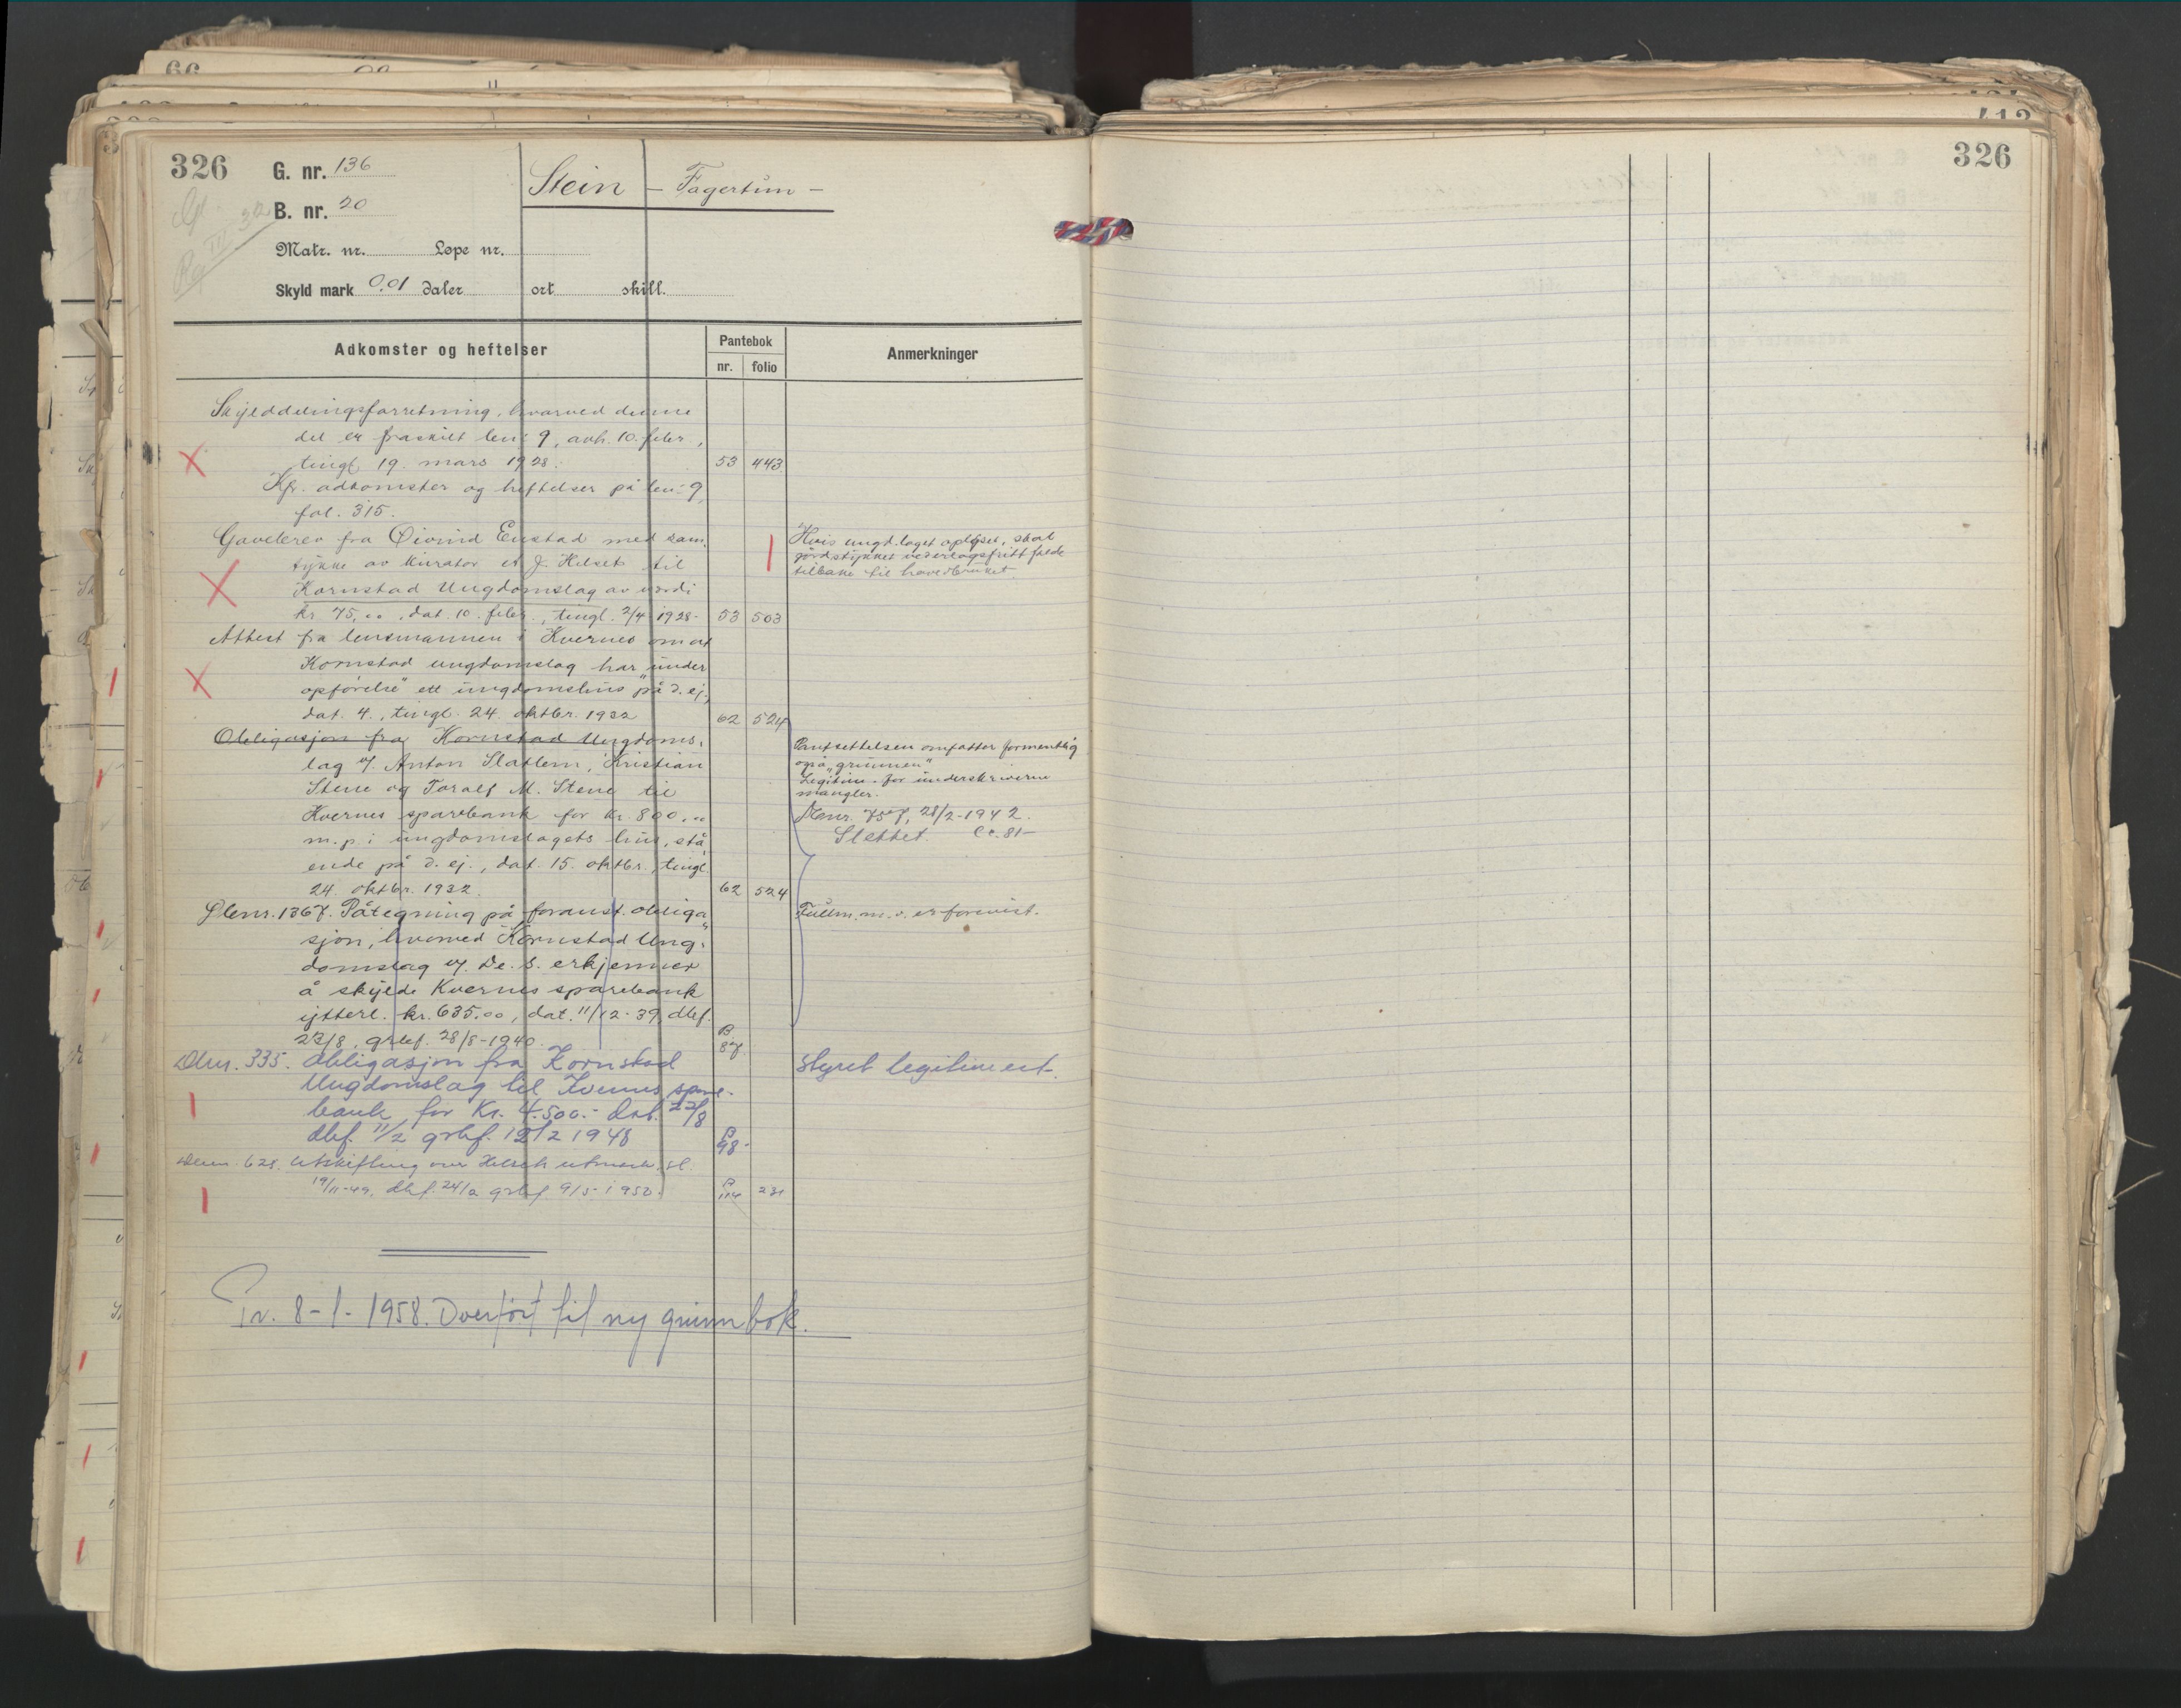 326
G. nr. 136
Stein – Fagertun –
B. nr. 20
Matr. nr. Løpe nr.
Skyld mark 0,01 daler ort skill.
Adkomster og heftelser
Pantebok
nr. folio
Anmerkninger
Skylddelingsforretning, hvorved denne
del er fraskilt bnr 9, avh. 10. febr.,
tingl. 19. mars 1928. 53 443
Kfr. adkomster og heftelser på bnr 9,
fol. 315.
Gavebrev fra Øivind Enstad med sam-
tykke av kurator J. Helset til
Kornstad Ungdomslag av verdi
kr 75,00, dat. 10. febr., tingl. 2/4 1928. 53 503
Hvis ungd.laget opløses, skal
jordstykket vederlagsfritt falde
tilbake til hovedbruket.
Attest fra lensmannen i Kvernes om at
Kornstad ungdomslag har "under
opførelse" ett ungdomshus på d. ej.,
dat. 4., tingl. 24. oktbr. 1932 62 524
Obligasjon fra Kornstad Ungdoms-
lag v/ Anton Slatlem, Kristian
Stene og Toralf M. Stene til
Kvernes sparebank for kr. 800,00
m. p. i ungdomslagets hus, stå-
ende på d. ej., dat. 15. oktbr., tingl.
24. oktbr. 1932. 62 524
Pantsettelsen omfatter formentlig
også "grunnen"
Legitim. for underskriverne
mangler.
28/2-1942.
Slettet.
Dbnr. 1367. Påtegning på foranst. obliga-
sjon, hvorved Kornstad Ung-
domslag v/ De. S. erkjenner
å skylde Kvernes sparebank
ytterl. kr. 635,00, dat. 11/12-39, dbf.
23/8, grbf. 28/8-1940. B 87.
Fullm. m. v. er forevist.
Dbnr. 335. Obligasjon fra Kornstad
Ungdomslag til Kvernes spare-
bank for Kr. 4.500.- dat.
dbf. 11/2 grbf. 12/2 1948 B 98.
Styret legitimert.
Dbnr. 628. Utskiftning over Helseth utmark, sl.
19/11-49, dbf. 24/2 grbf 9/5-1950. B 114 231
Tv. 8-1-1958. Overført til ny grunnbok.
326